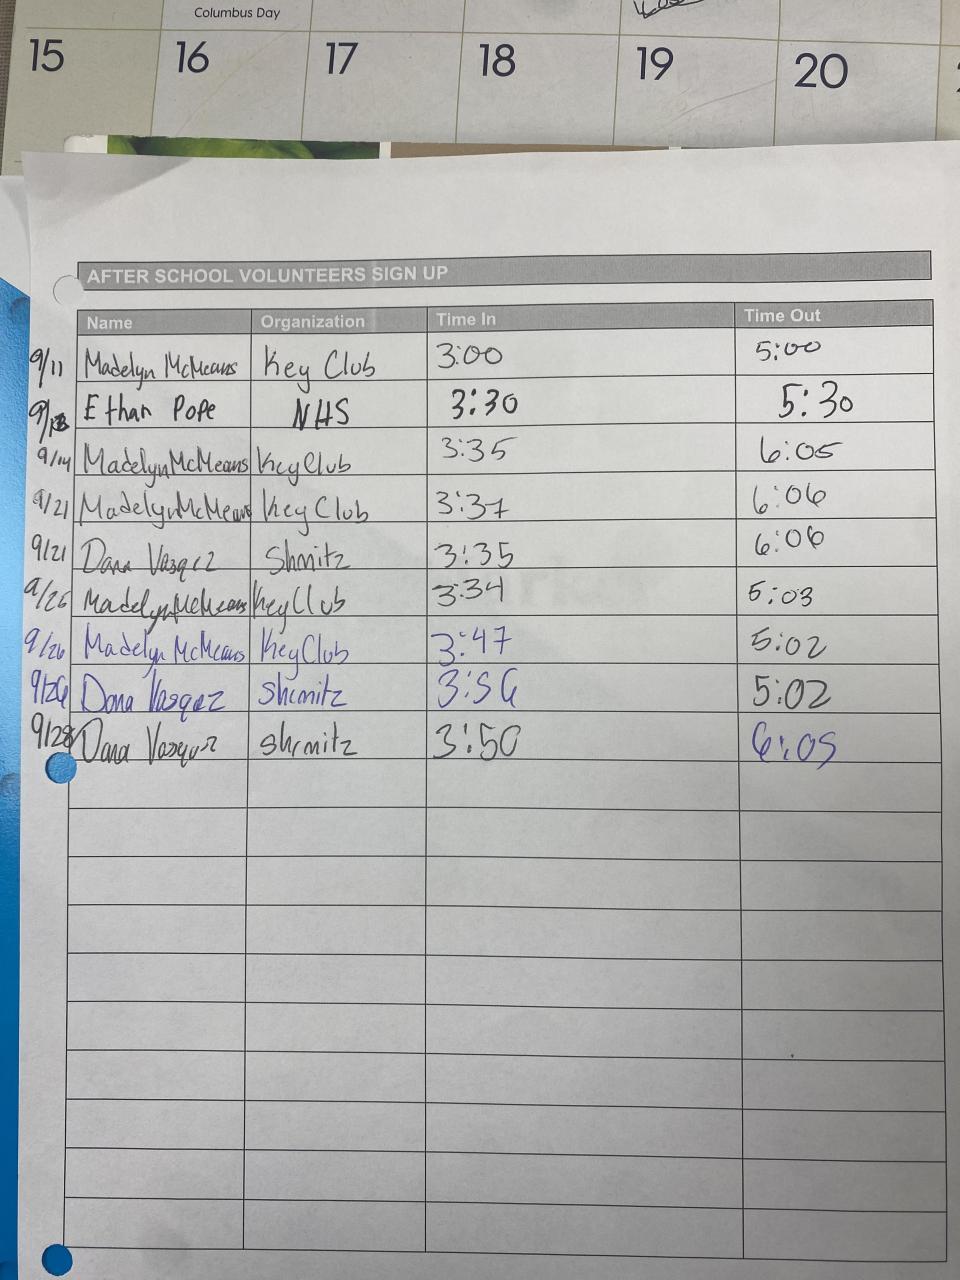 Columbus Day
15 16 17 18 19 20
AFTER SCHOOL VOLUNTEERS SIGN UP
Name Organization Time In Time Out
9/11 Madelyn McMeans Key Club 3:00 5:00
9/13 Ethan Pope NHS 3:30 5:30
9/14 Madelyn McMeans Key Club 3:35 6:05
9/21 Madelyn McMeans Key Club 3:37 6:06
9/21 Dana Vasqez Shmitz 3:35 6:06
9/25 Madelyn McMeans Key Club 3:34 5:03
9/26 Madelyn McMeans Key Club 3:47 5:02
9/26 Dana Vasquez Shcmitz 3:56 5:02
9/28 Dana Vasquez shcmitz 3:50 6:05